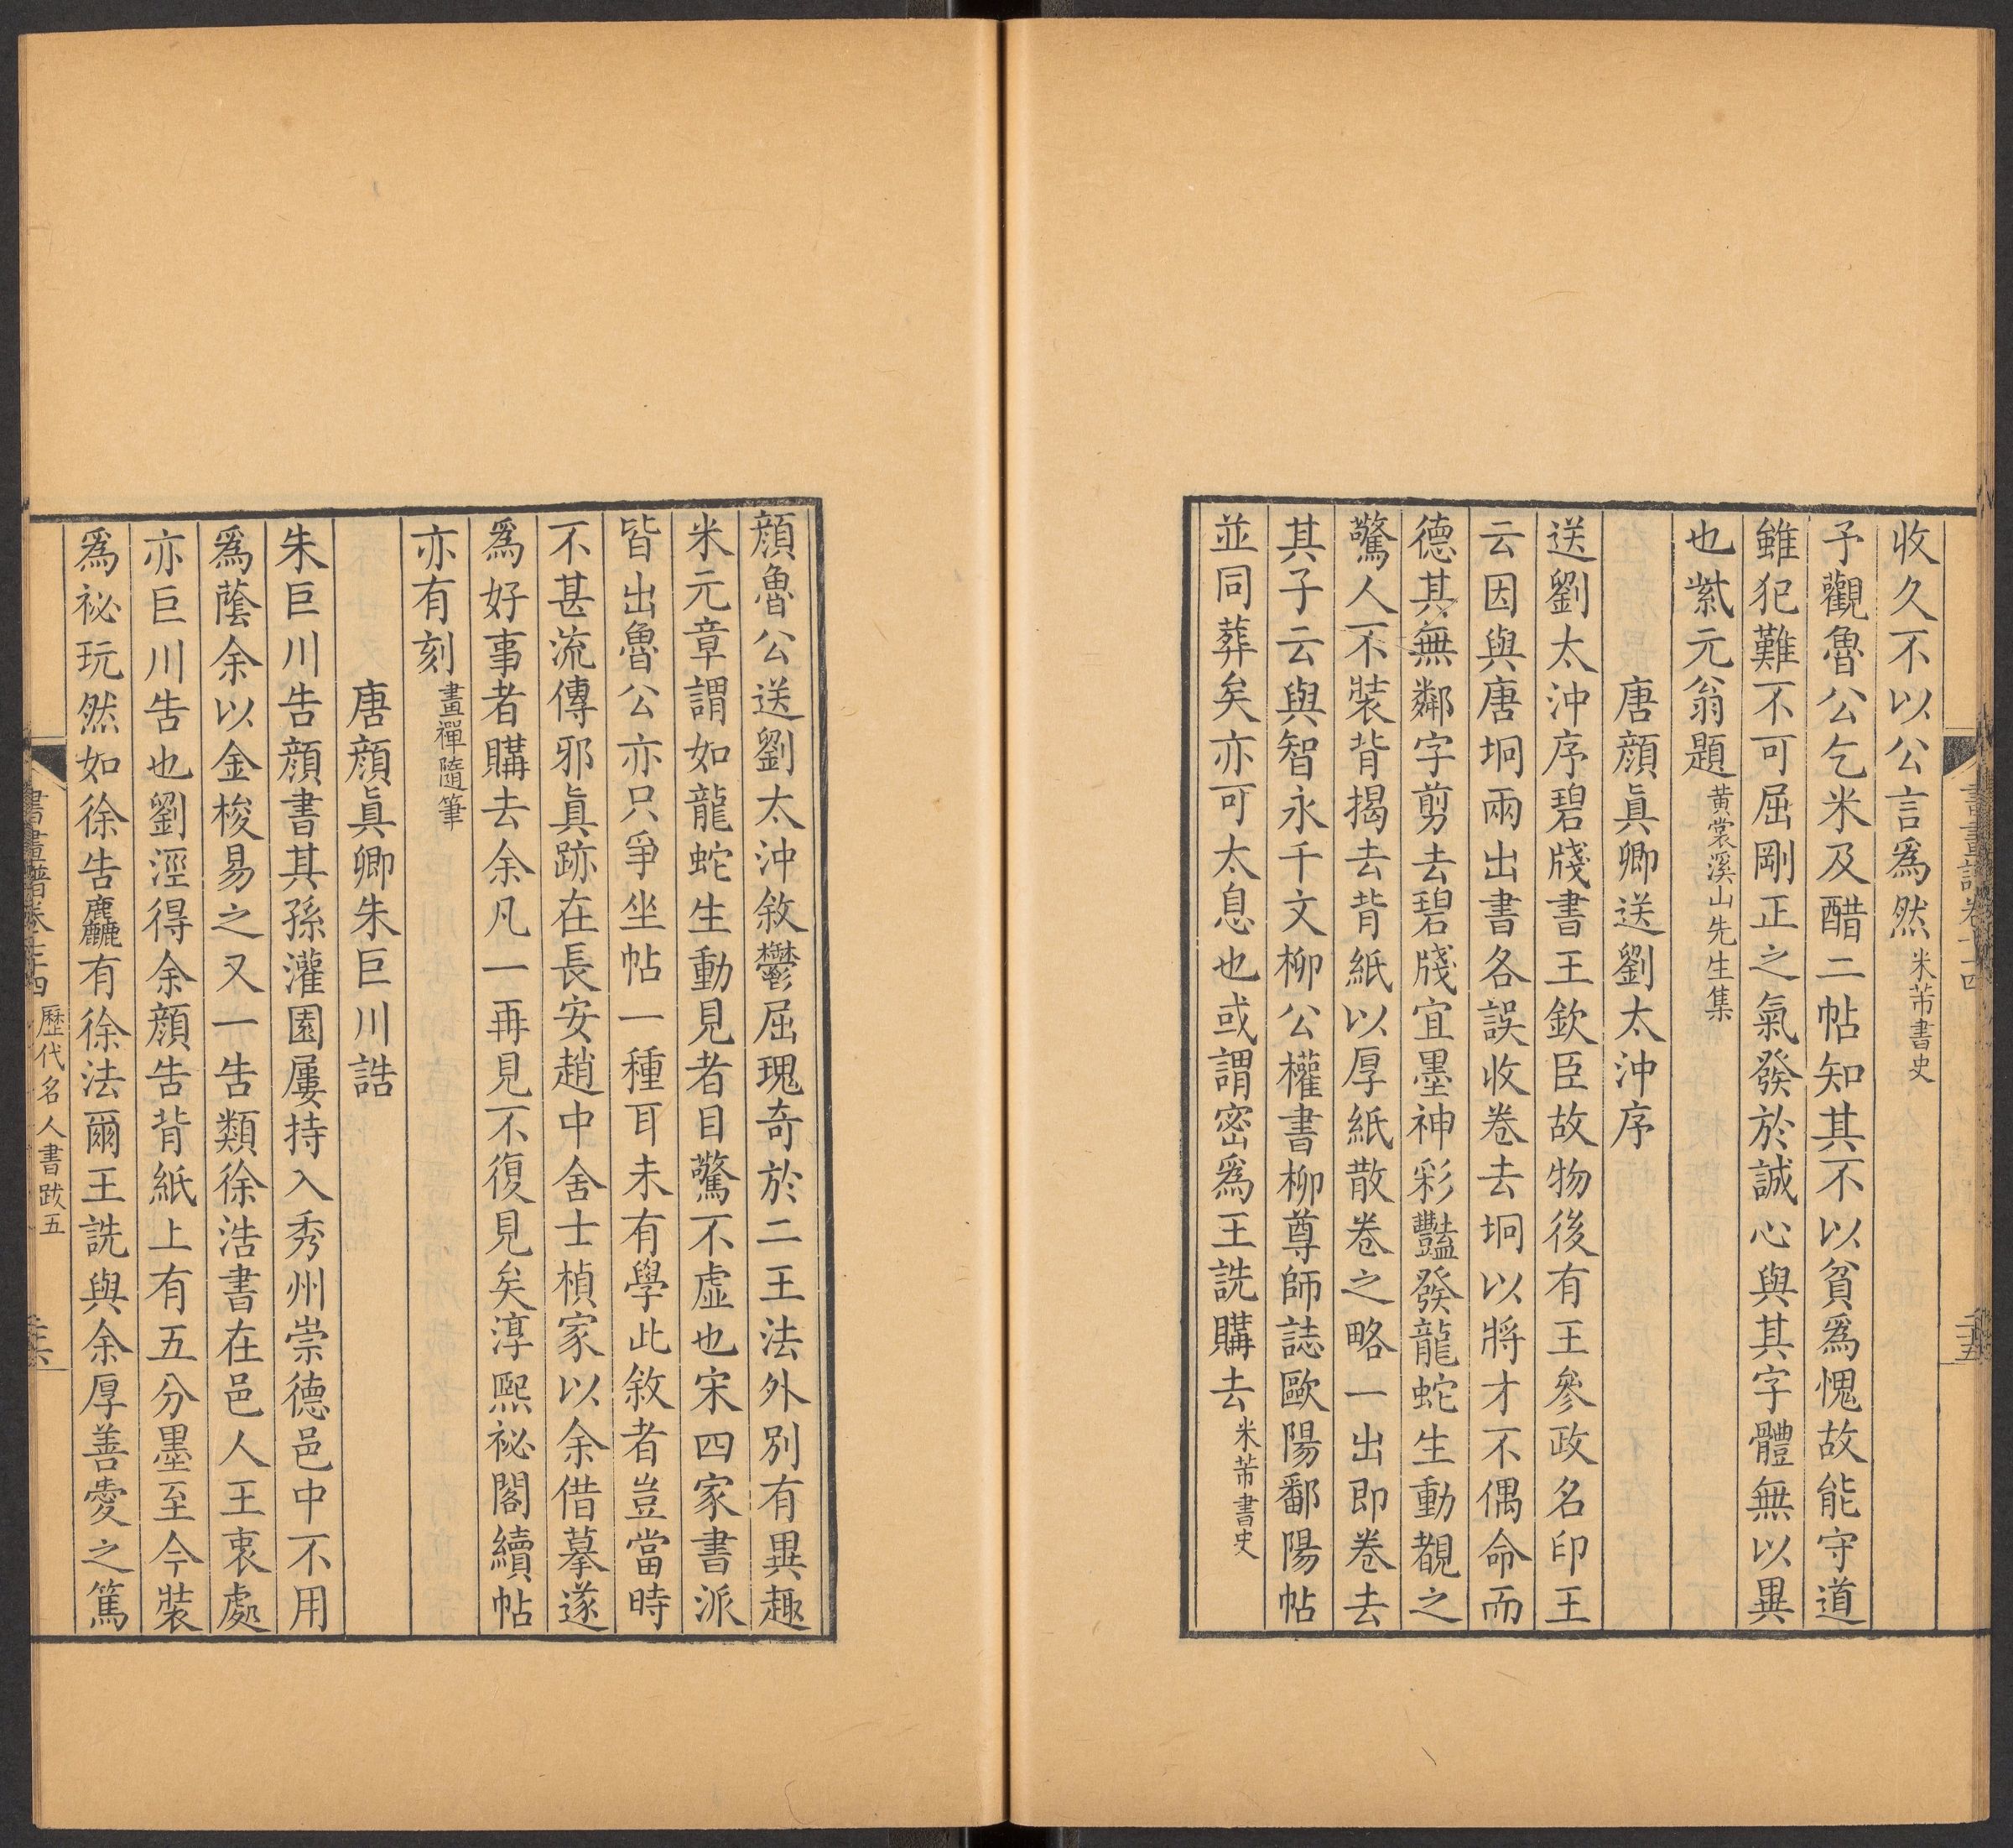 收久不以公言爲然米芾書史
予觀魯公乞米及醋二帖知其不以貧爲愧故能守道
雖犯難不可屈剛正之氣發於誠心與其字體無以異
也紫元翁題黄裳溪山先生集
唐顔眞卿送劉太沖序
送劉太沖序碧牋書王欽臣故物後有王參政名印王
云因與唐坰兩出書各誤收卷去坰以將才不偶命而
德其無鄰字剪去碧牋宜墨神彩豔發龍蛇生動覩之
驚人不裝背揭去背紙以厚紙散卷之略一出即卷去
其子云與智永千文柳公權書柳尊師誌歐陽鄱陽帖
並同葬矣亦可太息也或謂密爲王詵購去米芾書史
顔魯公送劉太沖敘鬱屈瑰奇於二王法外別有異趣
米元章謂如龍蛇生動見者目驚不虛也宋四家書派
皆出魯公亦只爭坐帖一種耳未有學此敘者豈當時
不甚流傳邪眞跡在長安趙中舍士楨家以余借摹遂
爲好事者購去余凡一再見不復見矣淳熙祕閣續帖
亦有刻畫禪隨筆
唐顔眞卿朱巨川誥
朱巨川告顔書其孫灌園屢持入秀州崇德邑中不用
爲蔭余以金梭易之又一告類徐浩書在邑人王衷處
亦巨川告也劉涇得余顔告背紙上有五分墨至今裝
爲祕玩然如徐告麤有徐法爾王詵與余厚善愛之篤
歷代名人書跋五